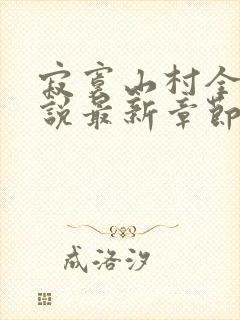 寂寞山村全
說最新章節
成洛汐